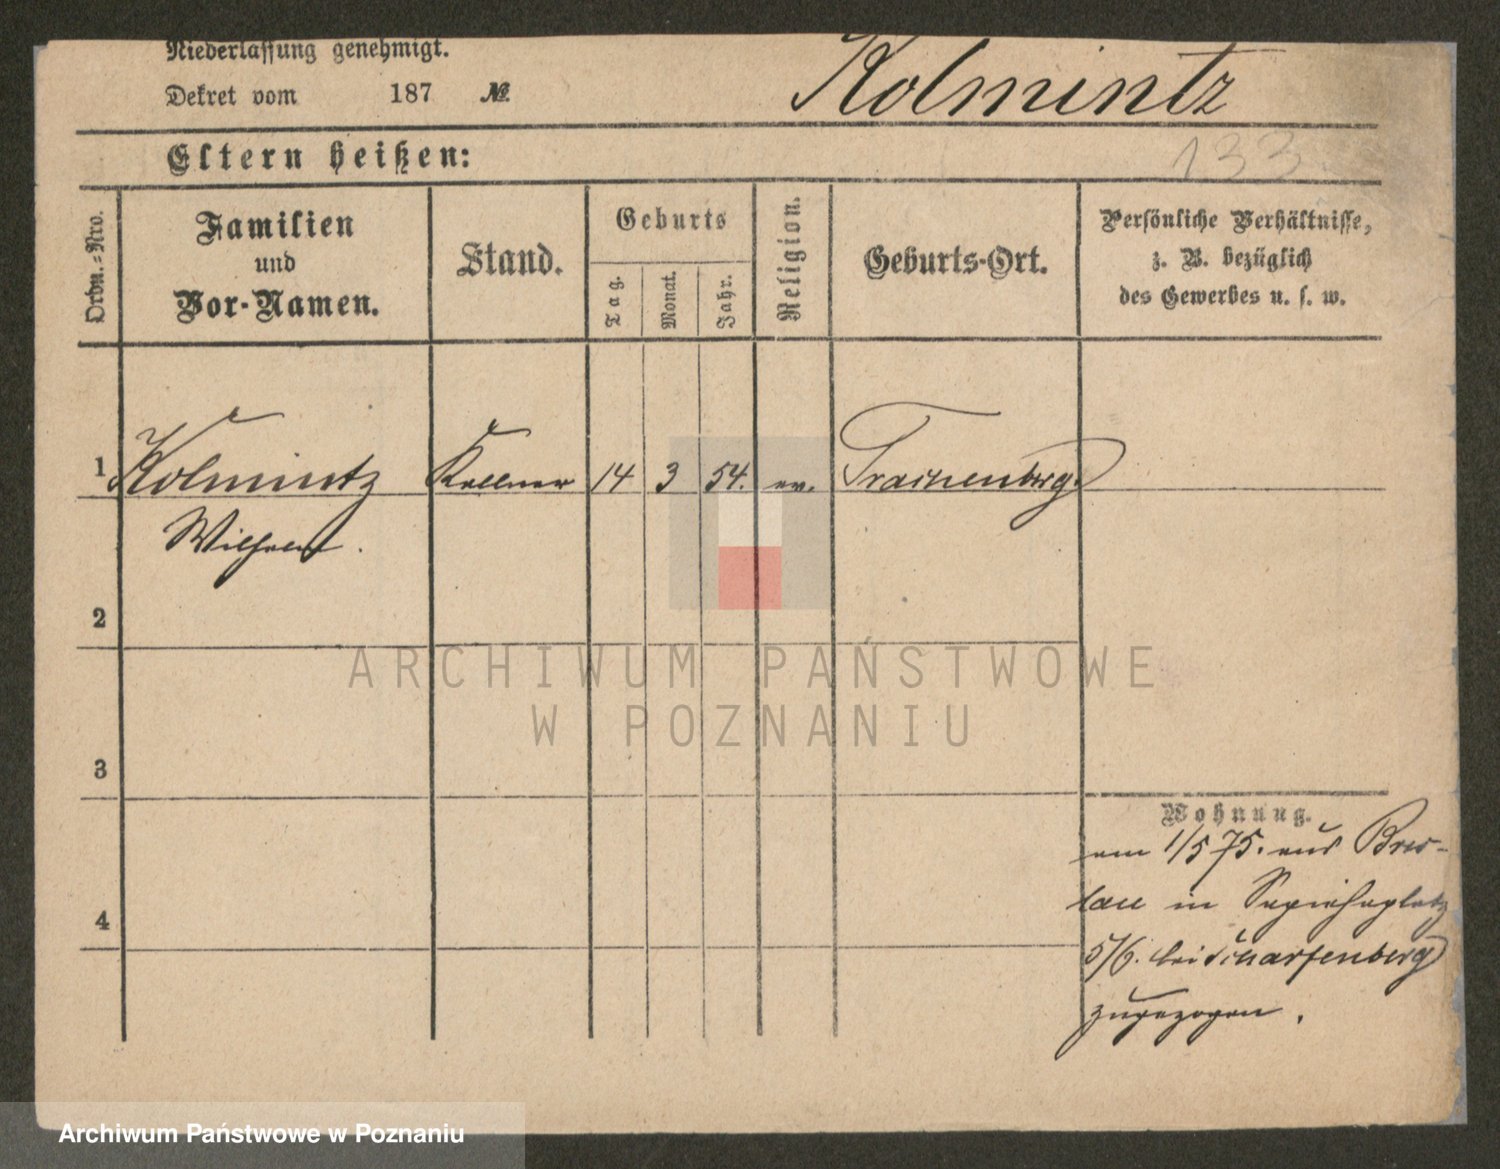 Niederlassung genehmigt.
Dekret vom 187 №
Kolmintz
133
Eltern heißen:
Ordn.-Nro.
Familien
und
Vor-Namen.
Stand.
Geburts
Tag.
Monat.
Jahr.
Religion.
Geburts-Ort.
Persönliche Verhältnisse,
z. B. bezüglich
des Gewerbes u. s. w.
1 Kolmintz Kellner 14 3 54. ev. Trachenberg
Wilhelm.
2
3
4
Wohnung.
am 1/5 75. aus Bres-
lau in Sapiehaplatz
5/6. bei Scharfenberg
zugezogen.
ARCHIWUM PAŃSTWOWE
W POZNANIU
Archiwum Państwowe w Poznaniu